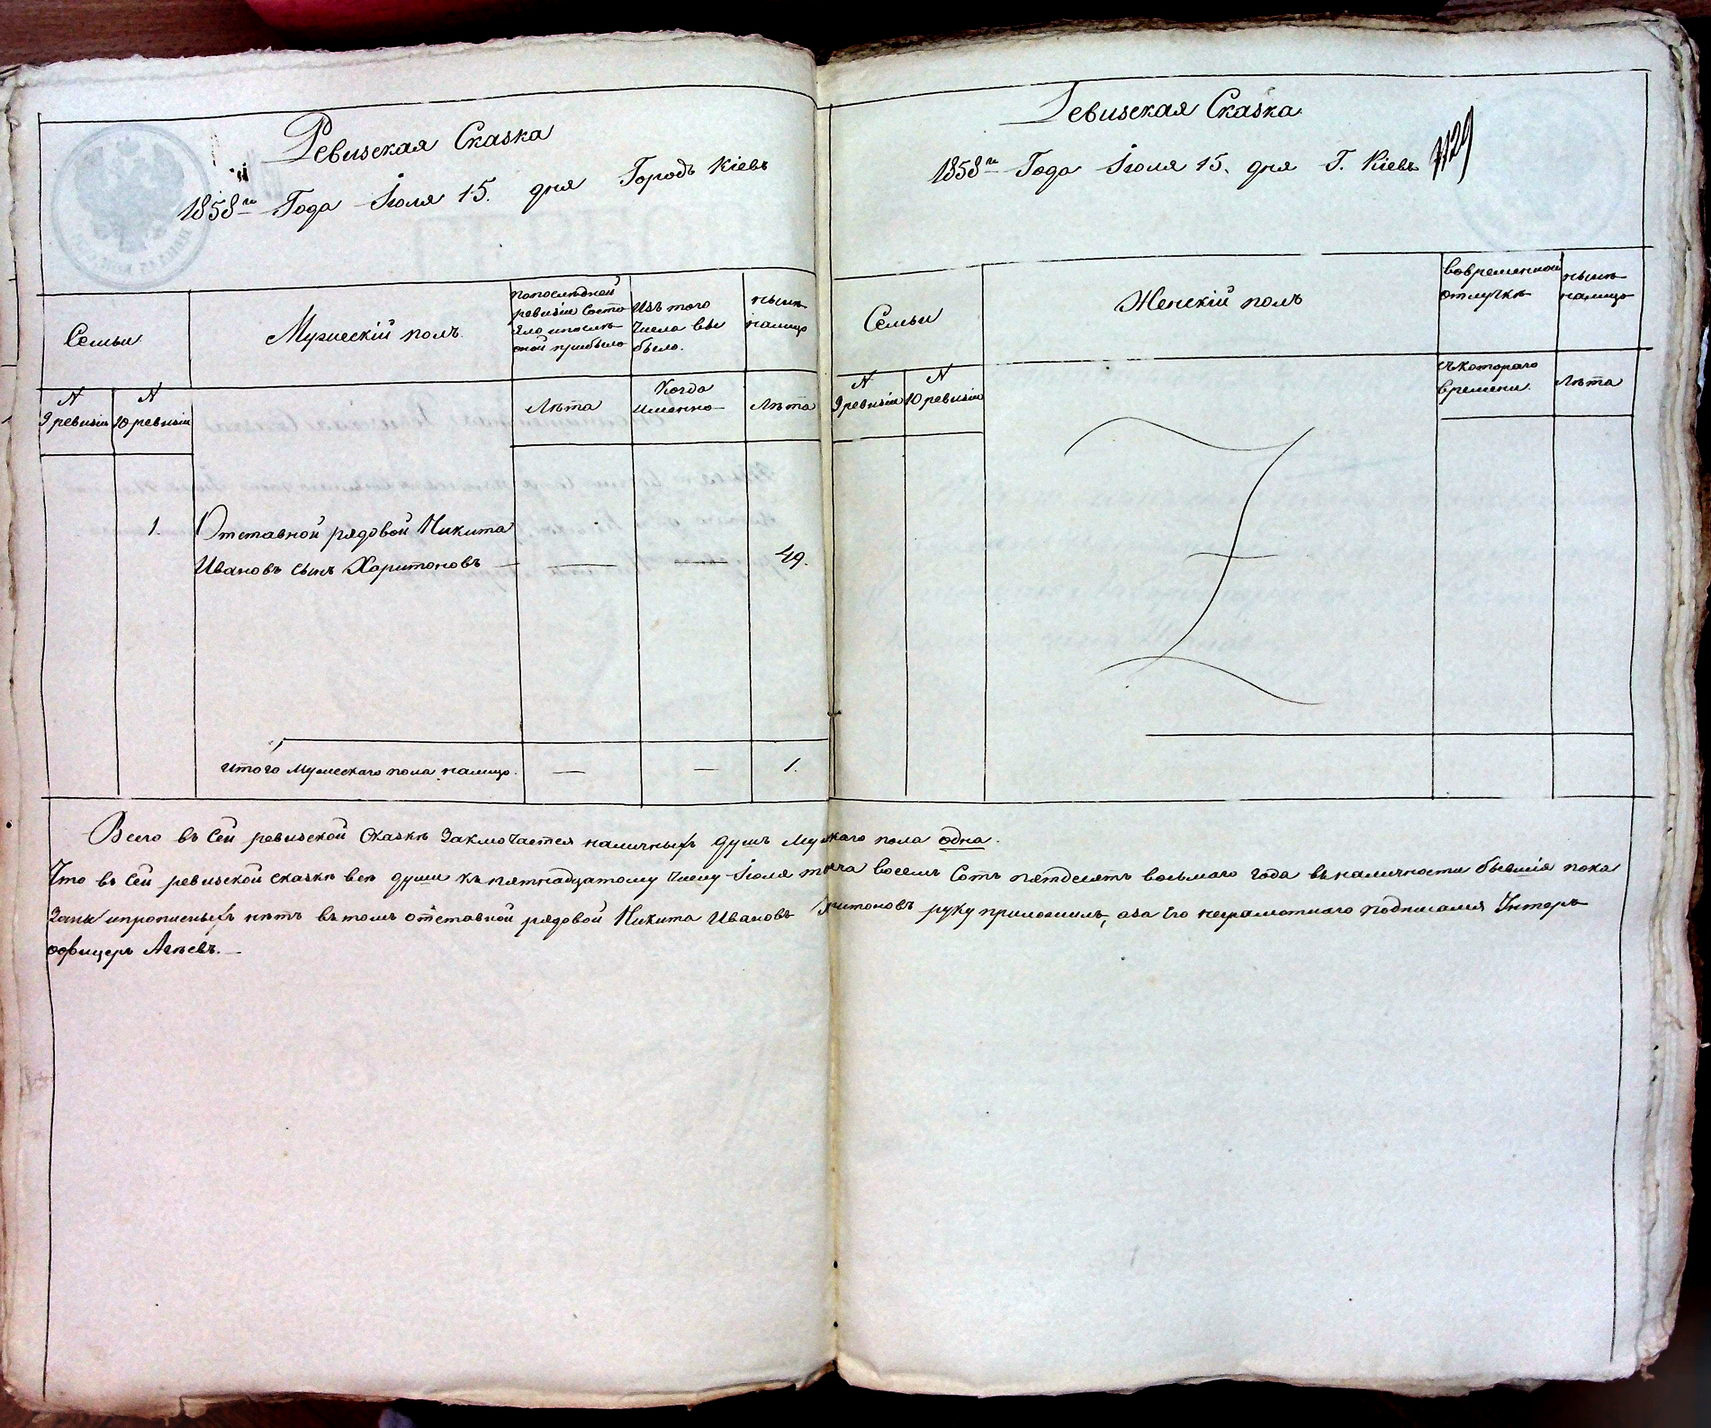 Ревизская Сказка
1858го Года Іюля 15. дня Городъ Кіевъ
Семьи
Мужескій полъ
По последней
ревизіи состо
яло и после
оной прибыло
Изъ того
числа вы
было.
ныне
налицо
N
9 ревизіи
N
10 ревизіи
Лѣта
Когда
именно
Лѣта
1. Отставной рядовой Никита
Ивановъ сынъ Харитоновъ — — — 49.
Итого Мужескаго пола налицо. — — 1.
Ревизская Сказка
1858го Года Іюля 15. дня Г. Кіевъ
1129
Семьи
Женскій полъ
Во временной
отлучкѣ
нынѣ
налицо
N
9 ревизіи
N
10 ревизіи
Съ котораго
времени
Лѣта
Всего въ сей ревизской сказкѣ заключается наличныхъ душъ мужскаго пола одна.
Что въ сей ревизской сказкѣ всѣ души къ пятнадцатому числу Іюля тысяча восемь сотъ пятдесятъ восьмаго года въ наличности бывшія пока
заны и прописныхъ нѣтъ въ томъ отставной рядовой Никита Ивановъ Харитоновъ руку приложилъ, а за его неграмотнаго подписался Унтеръ
офицеръ